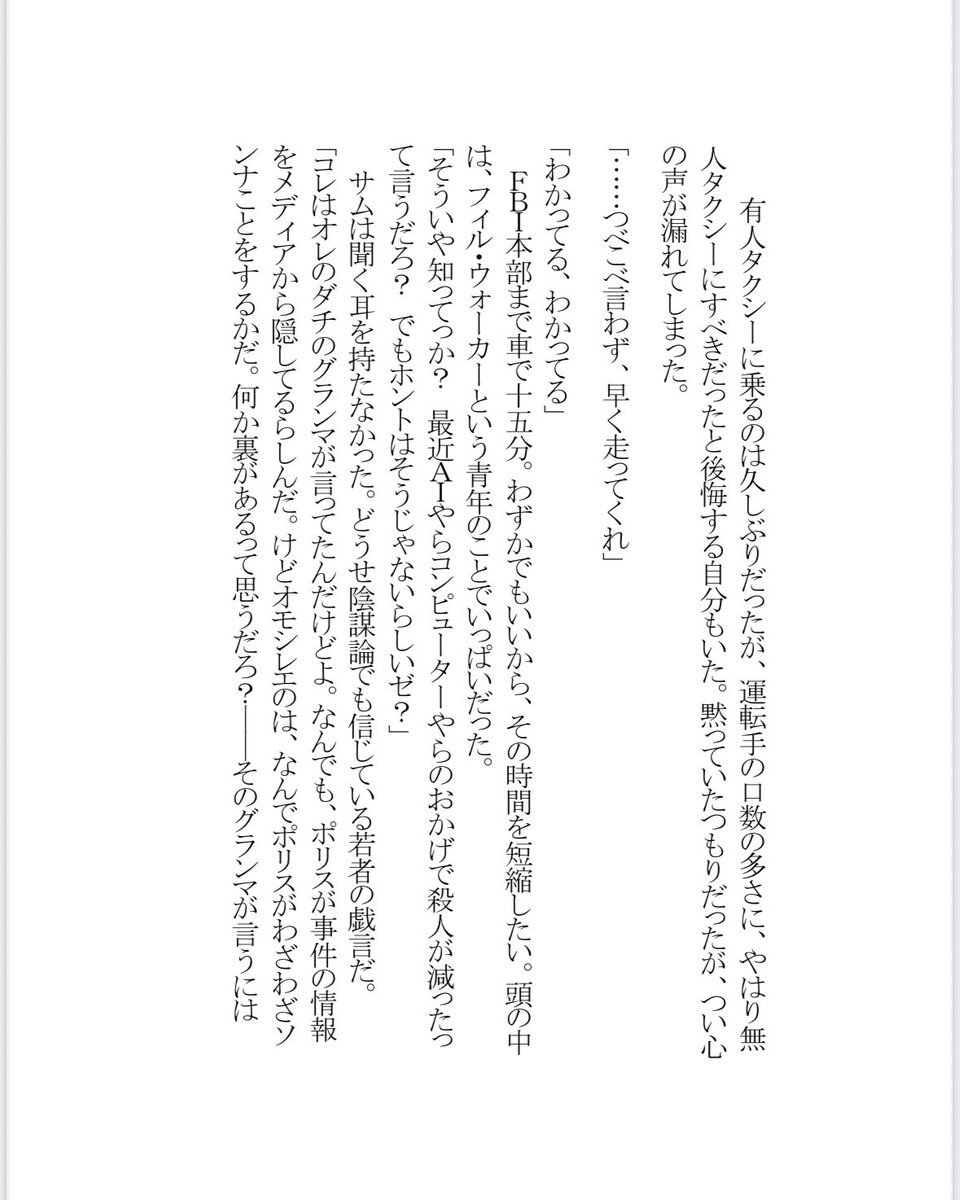 有人タクシーに乗るのは久しぶりだったが、運転手の口数の多さに、やはり無
人タクシーにすべきだったと後悔する自分もいた。黙っていたつもりだったが、つい心
の声が漏れてしまった。
「……つべこべ言わず、早く走ってくれ」
「わかってる、わかってる」
　ＦＢＩ本部まで車で十五分。わずかでもいいから、その時間を短縮したい。頭の中
は、フィル・ウォーカーという青年のことでいっぱいだった。
「そういや知ってっか？　最近ＡＩやらコンピューターやらのおかげで殺人が減ったっ
て言うだろ？　でもホントはそうじゃないらしいゼ？」
　サムは聞く耳を持たなかった。どうせ陰謀論でも信じている若者の戯言だ。
「コレはオレのダチのグランマが言ってたんだけどよ。なんでも、ポリスが事件の情報
をメディアから隠してるらしんだ。けどオモシレエのは、なんでポリスがわざわざソ
ンナことをするかだ。何か裏があるって思うだろ？――そのグランマが言うには